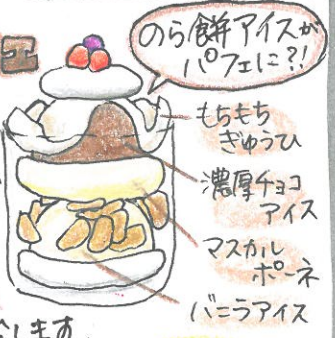 のら餅アイスが
パフェに?!
もちもち
ぎゅうひ
濃厚チョコ
アイス
マスカル
ポーネ
バニラアイス
します